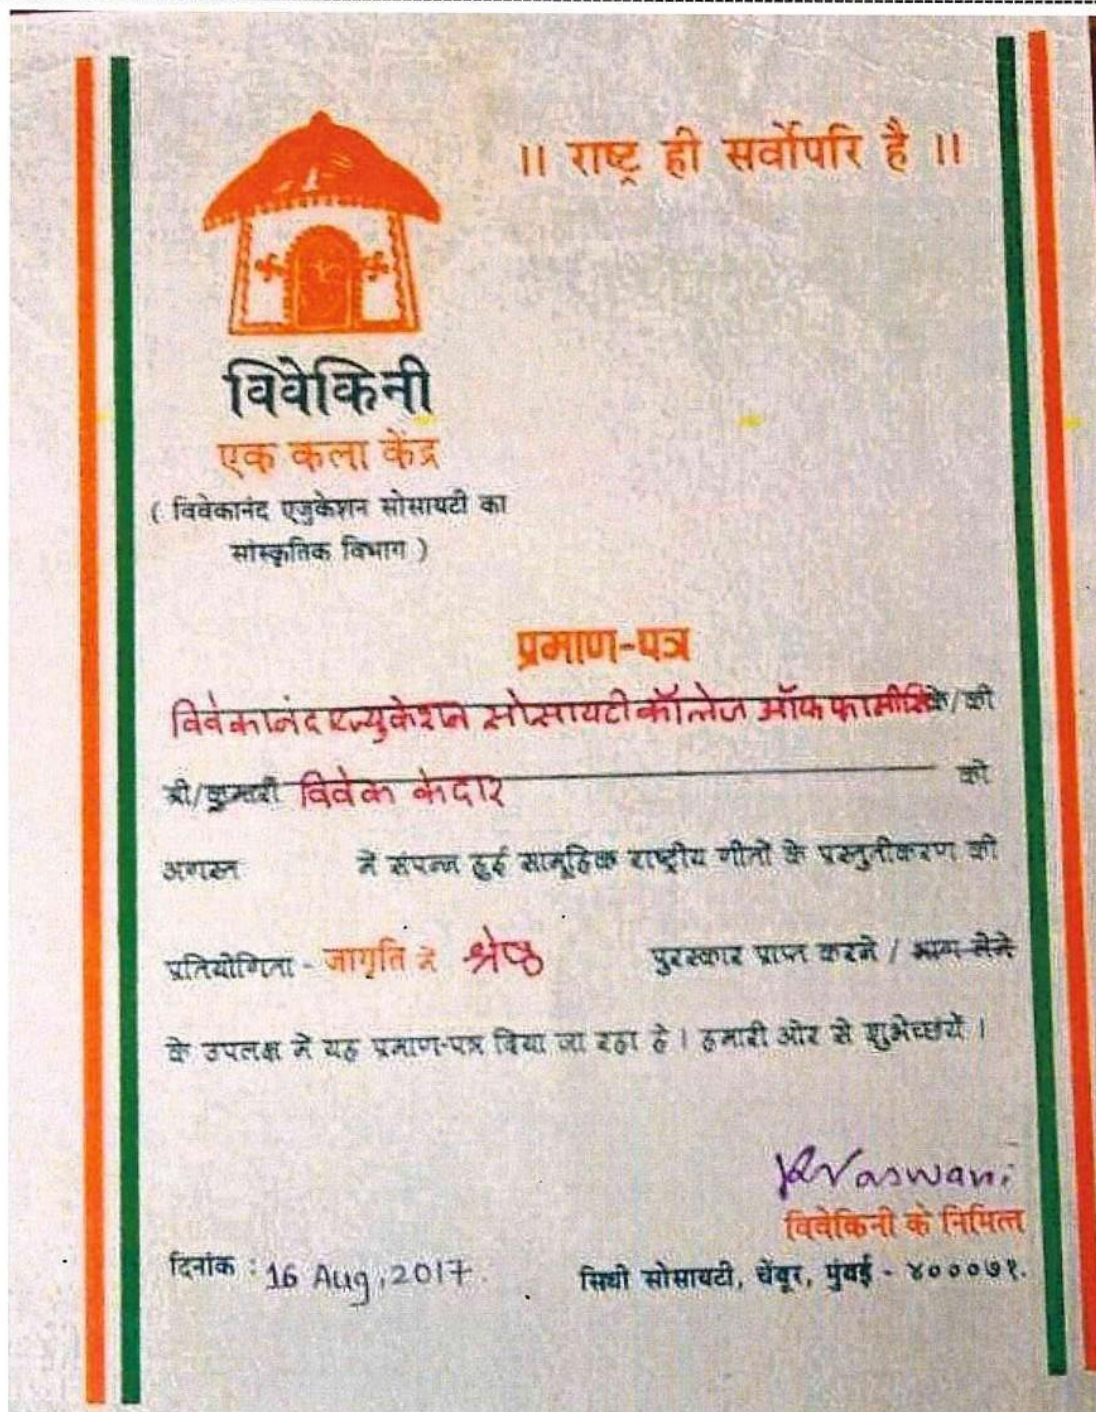 ।। राष्ट्र ही सर्वोपरि है ।।
विवेकिनी
एक कला केंद्र
( विवेकानंद एजुकेशन सोसायटी का
सांस्कृतिक विभाग )
प्रमाण-पत्र
विवेकानंद एज्युकेशन सोसायटी कॉलेज ऑफ फार्मसी के/की
श्री/कुमारी विवेक केदार को
अगस्त में संपन्न हुई सामूहिक राष्ट्रीय गीतों के प्रस्तुतीकरण की
प्रतियोगिता - जागृति में श्रेष्ठ पुरस्कार प्राप्त करने / भाग लेने
के उपलक्ष में यह प्रमाण-पत्र दिया जा रहा है । हमारी ओर से शुभेच्छायें ।
KVaswani
विवेकिनी के निमित्त
दिनांक : 16 Aug, 2017.
सिंधी सोसायटी, चेंबूर, मुंबई - ४०००७१.